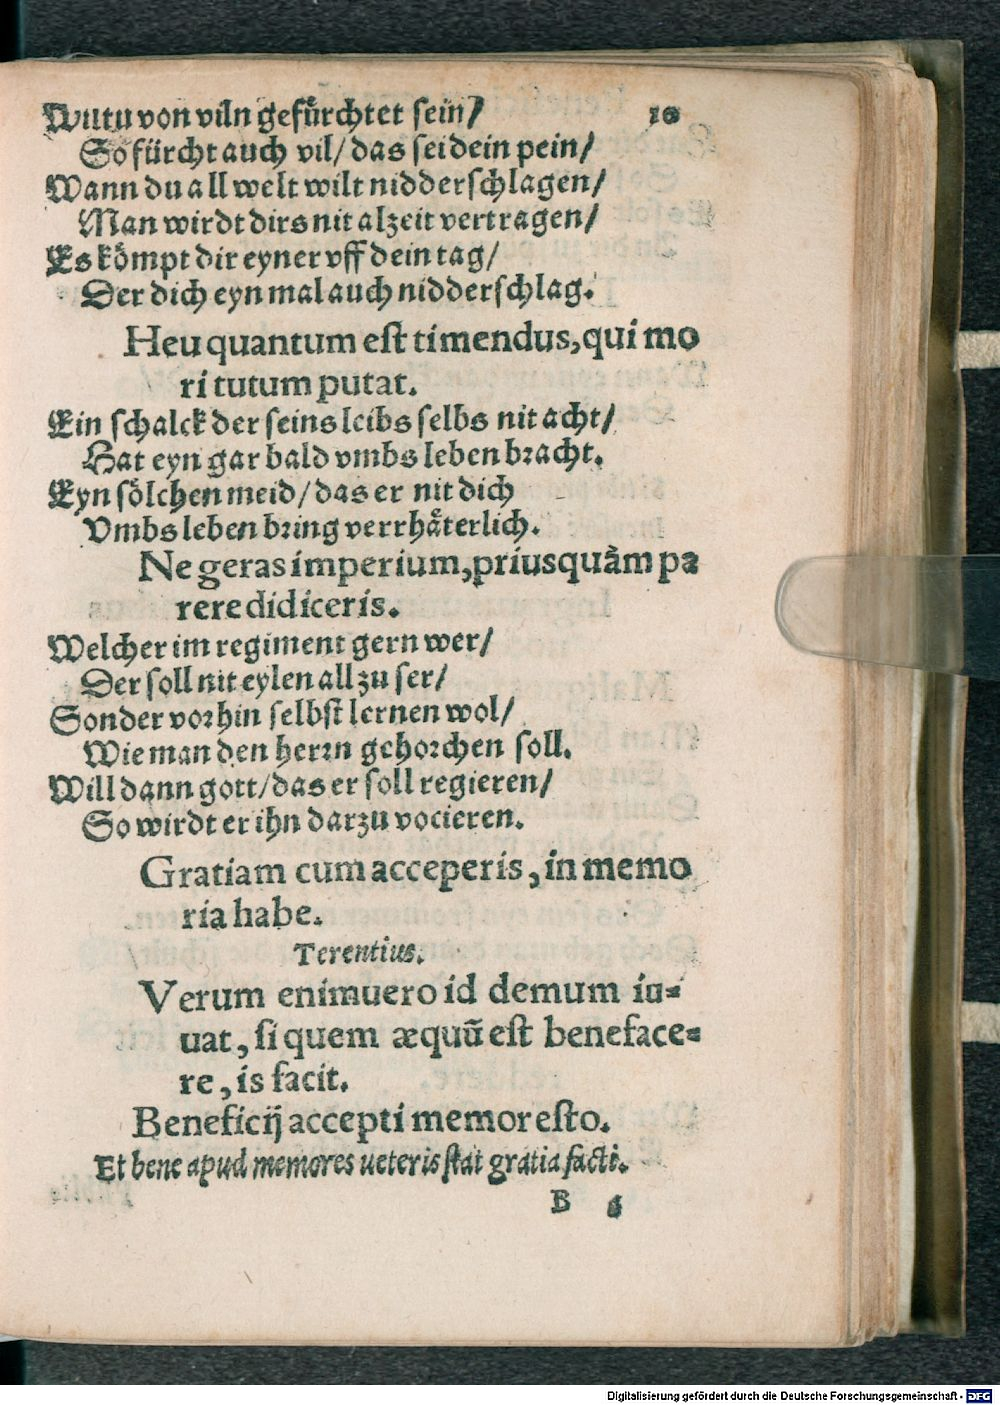 Wiltu von viln gefürchtet sein/ 10
So fürcht auch vil/ das sei dein pein/
Wann du all welt wilt nidderschlagen/
Man wirdt dirs nit alzeit vertragen/
Es kömpt dir eyner vff dein tag/
Der dich eyn mal auch nidderschlag.
Heu quantum est timendus, qui mo
ri tutum putat.
Ein schalck der seins leibs selbs nit acht/
Hat eyn gar bald vmbs leben bracht.
Eyn sölchen meid/ das er nit dich
Vmbs leben bring verrhäterlich.
Ne geras imperium, priusquàm pa
rere didiceris.
Welcher im regiment gern wer/
Der soll nit eylen all zu ser/
Sonder vorhin selbst lernen wol/
Wie man den herrn gehorchen soll.
Will dann gott/ das er soll regieren/
So wirdt er ihn darzu vocieren.
Gratiam cum acceperis, in memo
ria habe.
Terentius.
Verum enimuero id demum iu-
uat, si quem æquũ est beneface-
re, is facit.
Beneficij accepti memor esto.
Et bene apud memores ueteris stat gratia facti.
B 6
Digitalisierung gefördert durch die Deutsche Forschungsgemeinschaft - DFG